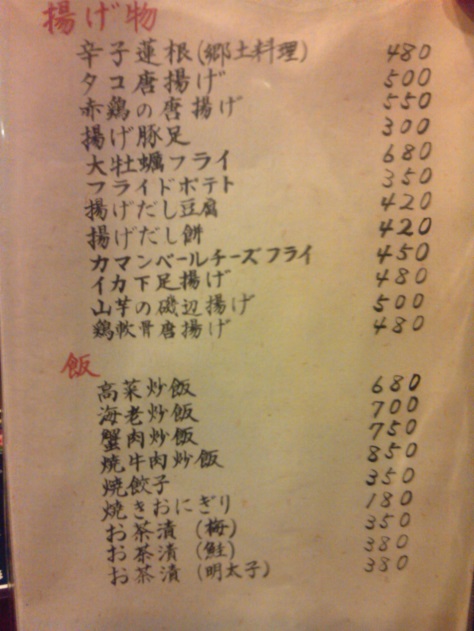 揚げ物
辛子蓮根(郷土料理) 480
タコ唐揚げ 500
赤鶏の唐揚げ 550
揚げ豚足 300
大牡蠣フライ 680
フライドポテト 350
揚げだし豆腐 420
揚げだし餅 420
カマンベールチーズフライ 450
イカ下足揚げ 480
山芋の磯辺揚げ 500
鶏軟骨唐揚げ 480
飯
高菜炒飯 680
海老炒飯 700
蟹肉炒飯 750
焼牛肉炒飯 850
焼餃子 350
焼きおにぎり 180
お茶漬(梅) 350
お茶漬(鮭) 380
お茶漬(明太子) 380